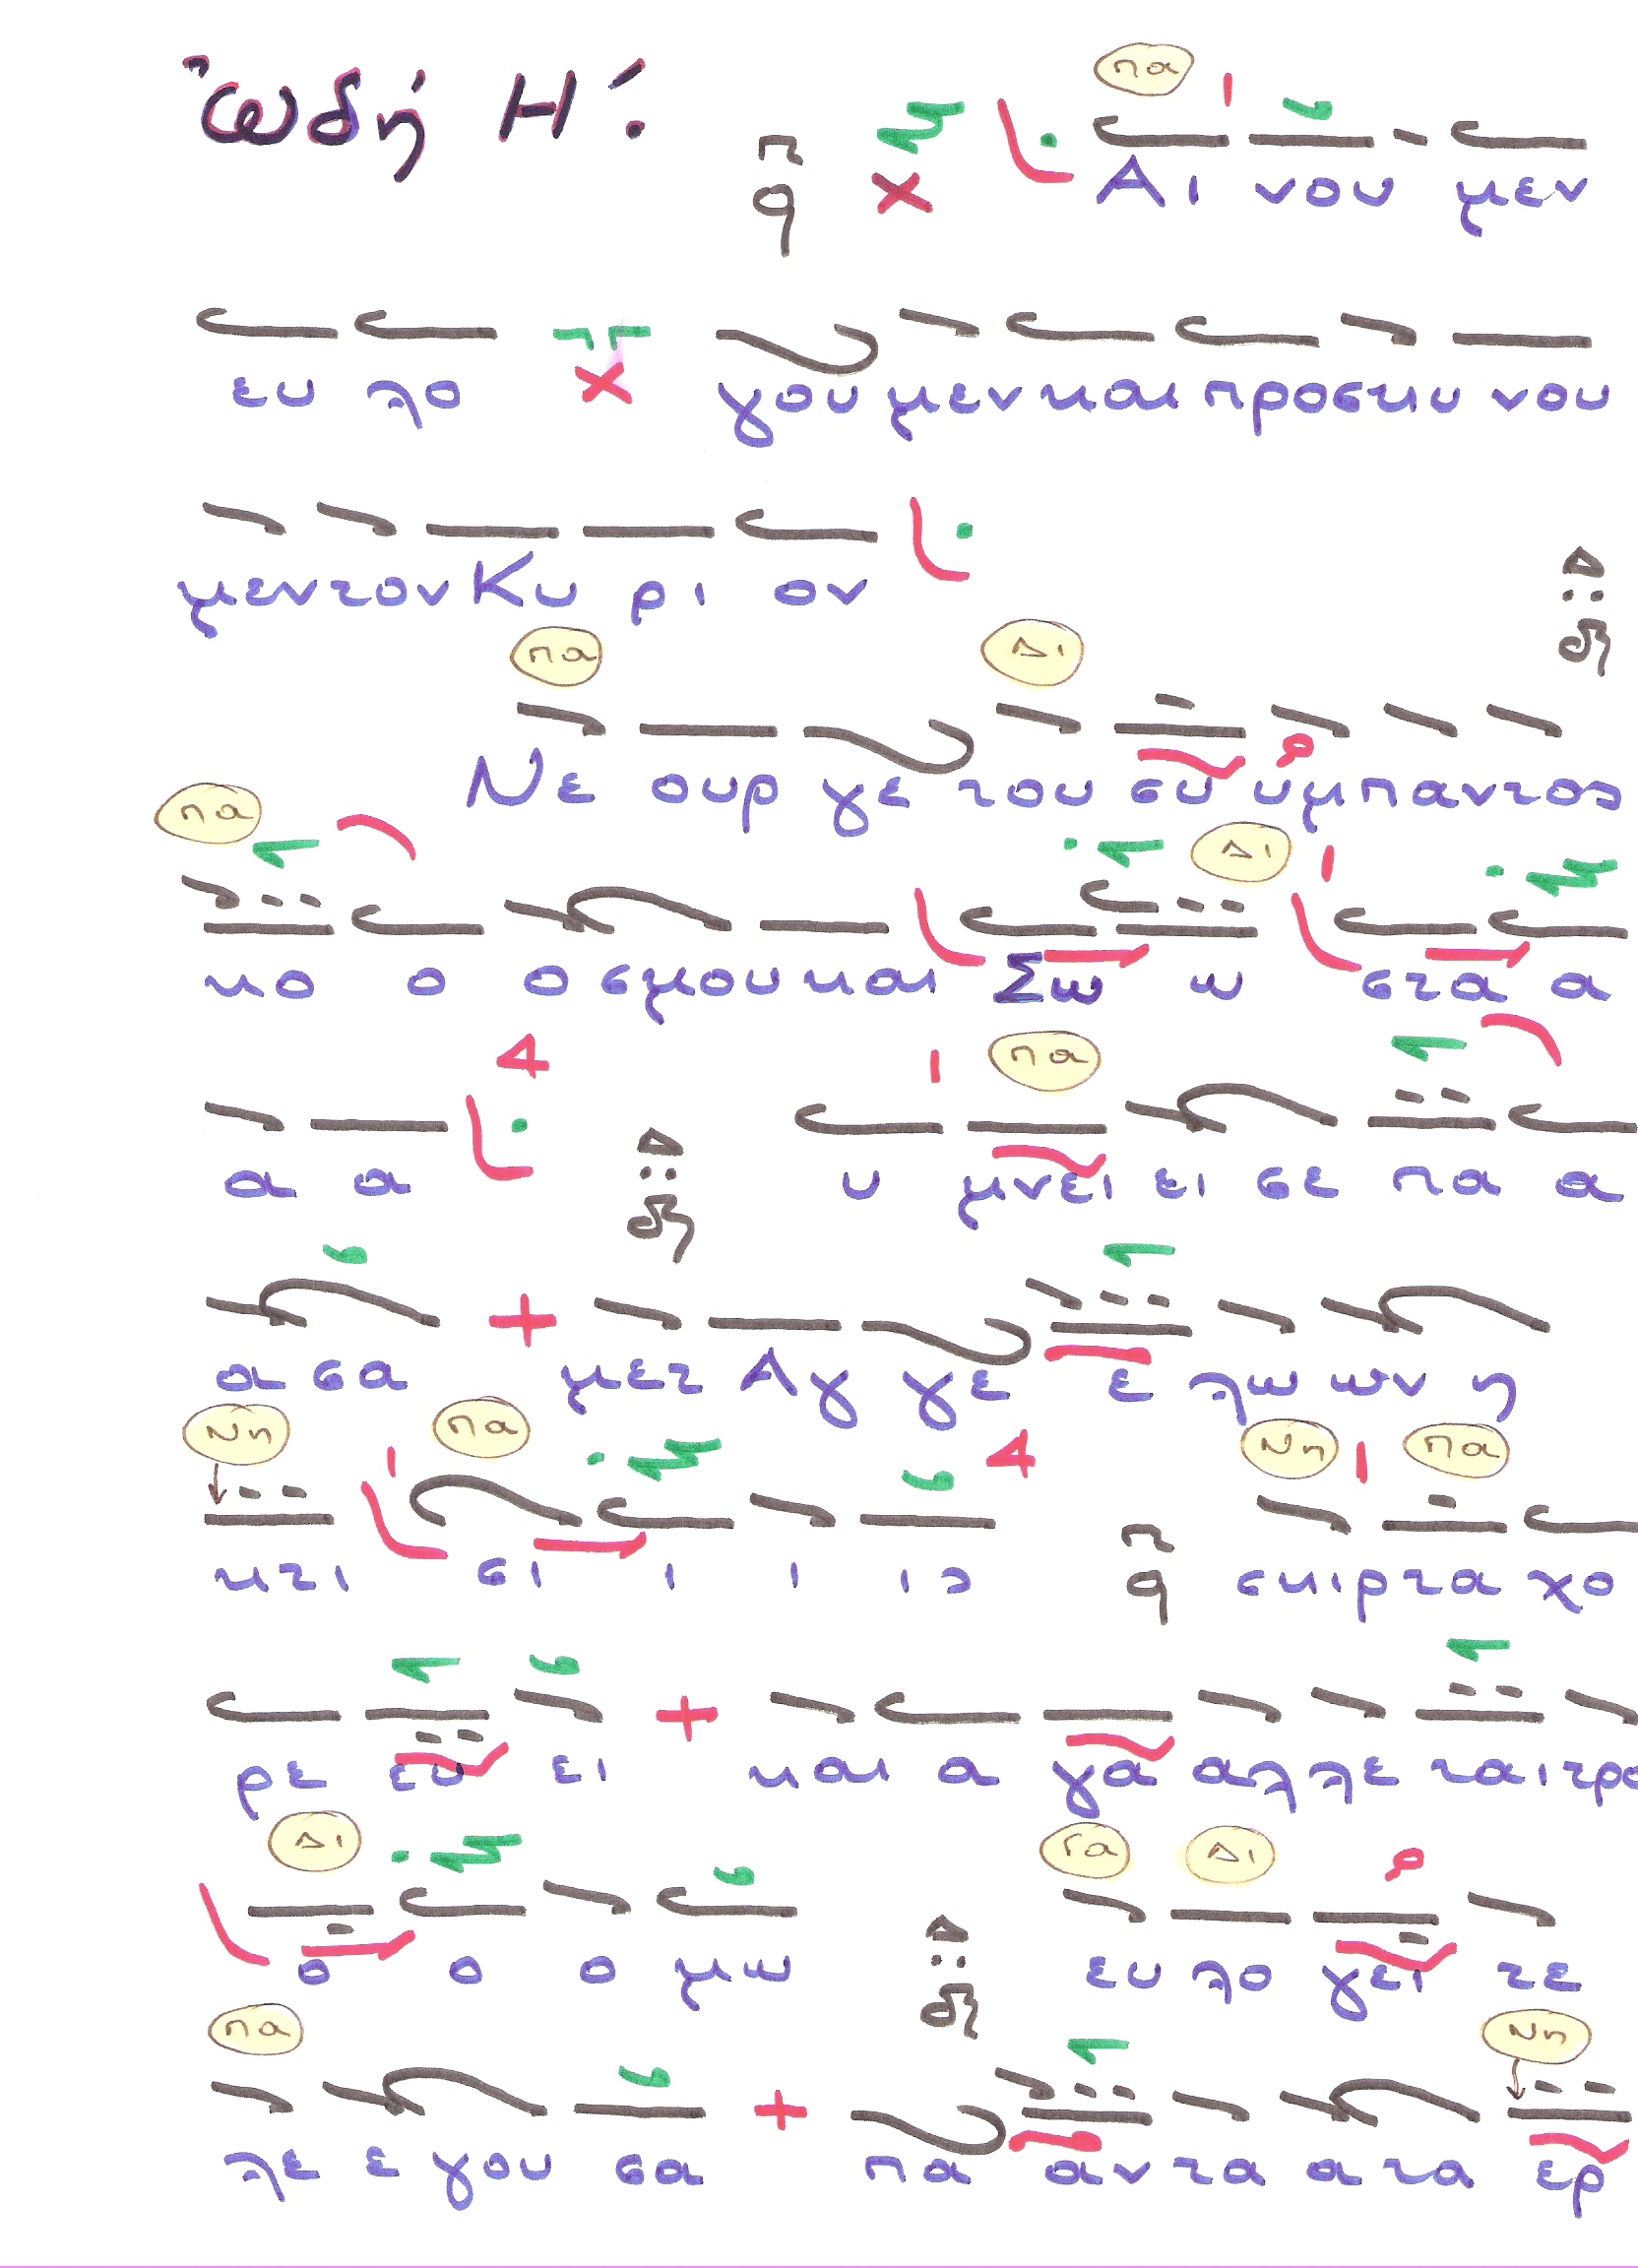 ᾨδή Η΄.
πα
Αι νου μεν
ευ λο γου μεν και προσκυ νου
μεν τον Κυ ρι ον
πα Δι
Νε ουρ γε του συ υμπαντος
πα Δι
κο ο ο σμου και Σω ω στα α
4 πα
α α υ μνει ει σε πα α
α σα μετ Αγ γε ε λω ων η
Νη πα 4 Νη πα
κτι σι ι ι ις σκιρτα χο
ρε ευ ει και α γα αλλε ται τρο
Δι Γα Δι
ο ο ο μω ευ λο γει τε
πα Νη
λε ε γου σα πα αντα α τα ερ